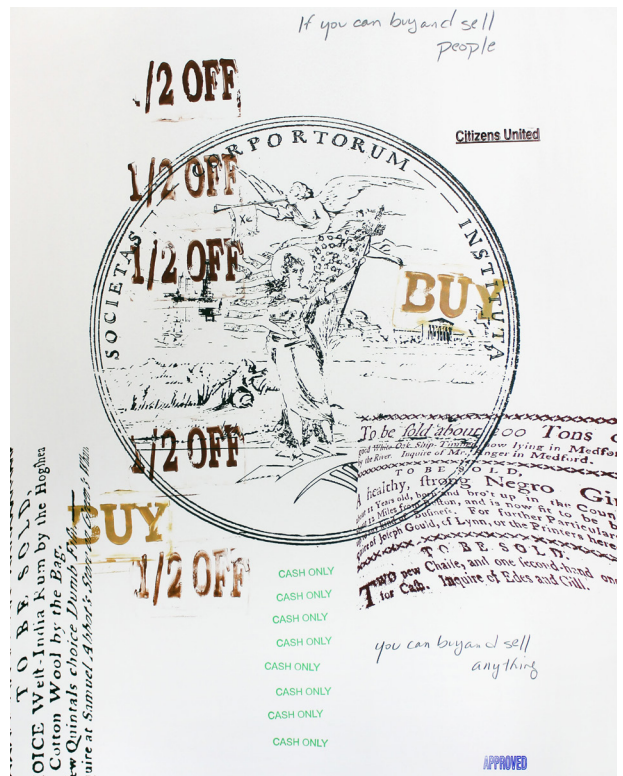 If you can buy and sell
people
1/2 OFF
Citizens United
1/2 OFF
1/2 OFF
SOCIETAS
INSTITUTA
BUY
1/2 OFF
BUY
1/2 OFF
To be sold about
00 Tons
good White Oak Ship-Timber, now lying in Medfor
by the River. Inquire of Mr.
nger in Medford.
TO BE SOLD,
A healthy, strong Negro Gi
Years old, born and bro't up in the Coun
12 Miles from Boston, and is now fit to be
of Business. For further Particular
quire of Joseph Gould, of Lynn, or the Printers here
TO BE SOLD.
TWO new Chaise, and one second-hand one
for Cash. Inquire of Edes and Gill.
TO BE SOLD,
OICE West-India Rum by the Hoghea
Cotton Wool by the Bag,
ew Quintals choice Dumb Fish
uire at Samuel Abbot's Store
CASH ONLY
CASH ONLY
CASH ONLY
CASH ONLY
CASH ONLY
CASH ONLY
CASH ONLY
CASH ONLY
you can buy and sell
anything
APPROVED